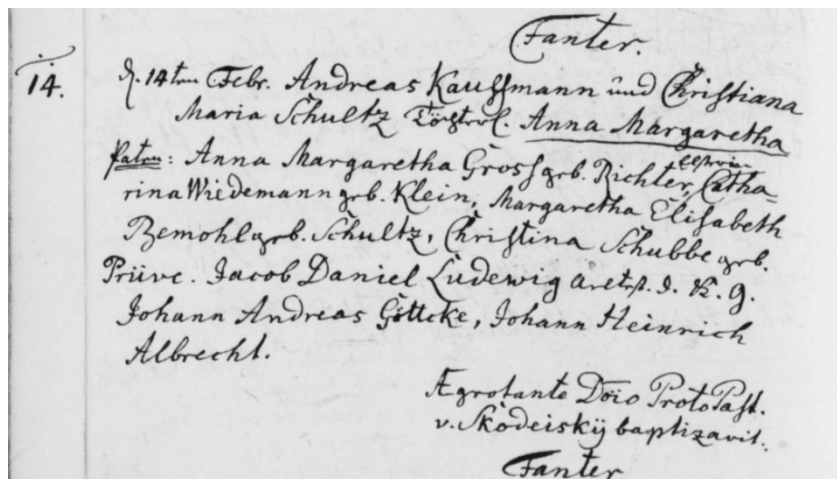 Fanter.
14.
d. 14ten Febr. Andreas Kauffmann und Christiana
Maria Schultz Töchterl. Anna Margaretha
Patrin: Anna Margaretha Gross geb. Richter, Catha-
rina Wiedemann geb. Klein, Margaretha Elisabeth
Bemohl geb. Schultz, Christina Schubbe geb.
Prüve. Jacob Daniel Ludewig
Johann Andreas Göttcke, Johann Heinrich
Albrecht.
Ægrotante Dōio ProtoPast.
v. Skodeiskij baptizavit.
Fanter